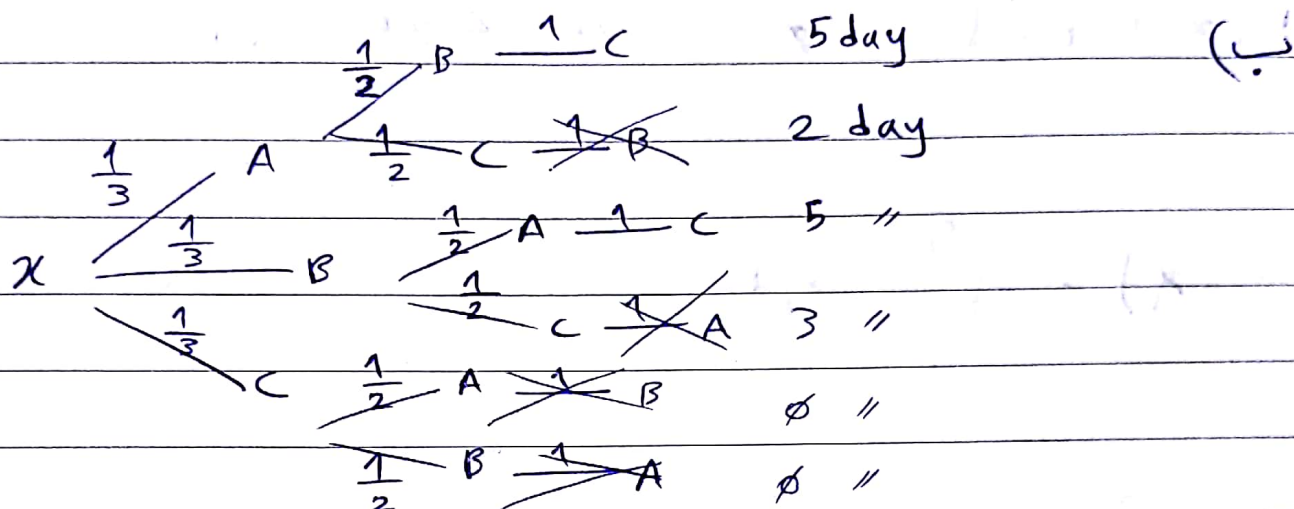 1/2 B 1 C 5 day ب)
1/3 A 1/2 C 1 B 2 day
x 1/3 B 1/2 A 1 C 5 〃
1/2 C 1 A 3 〃
1/3 C 1/2 A 1 B ∅ 〃
1/2 B 1 A ∅ 〃